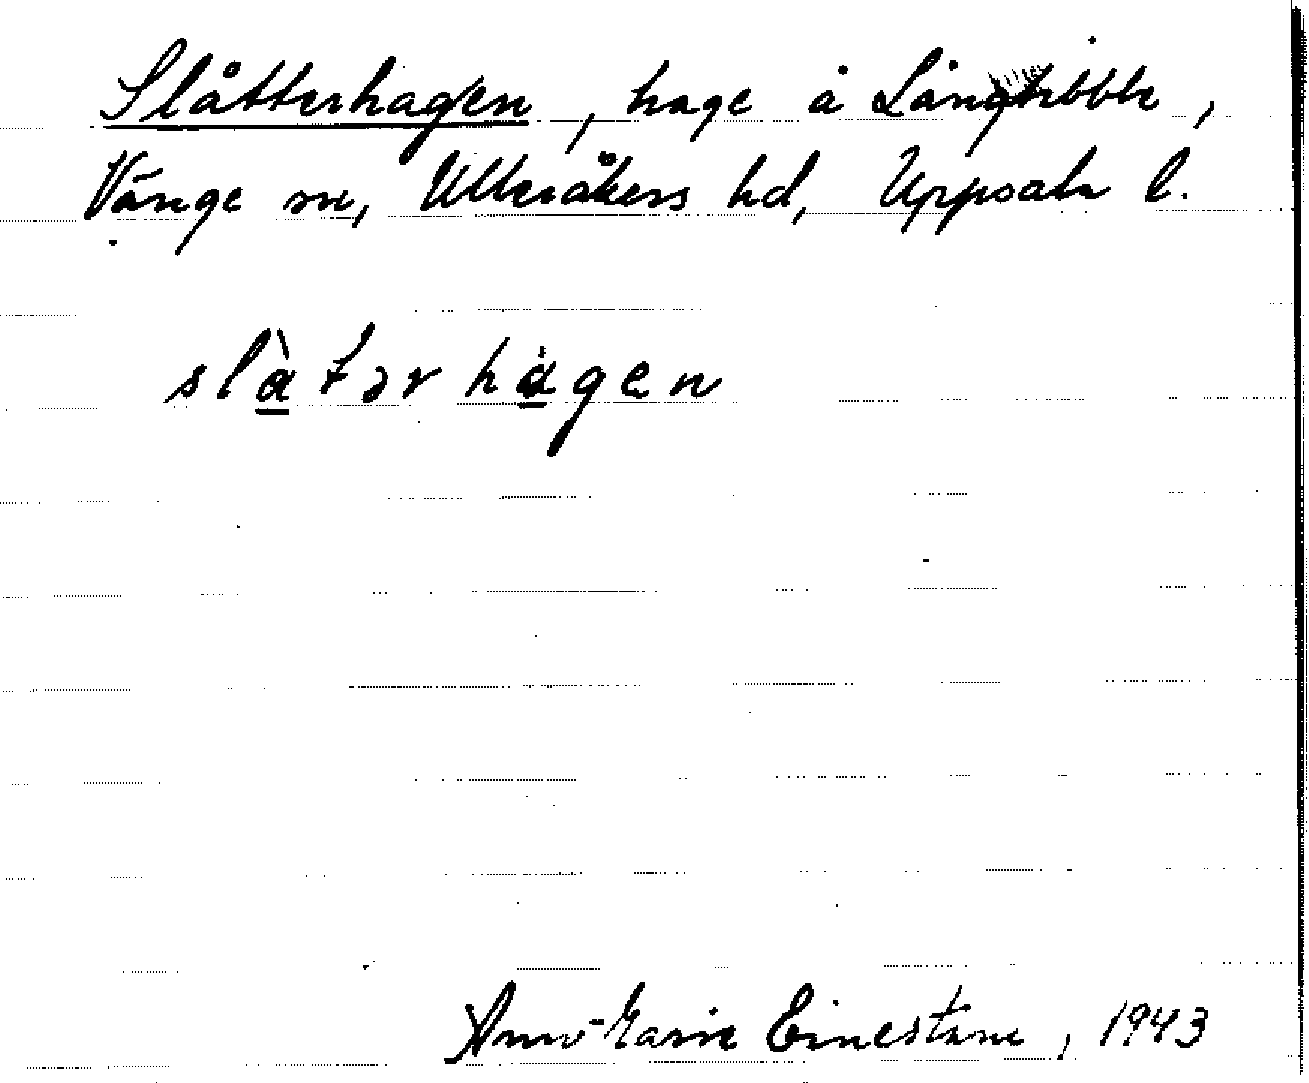 Slåtterhagen, hage å Långtibble,
Vänge sn, Ulleråkers hd, Uppsala l.
slàtərhàgen
Ann-Marie, 1943